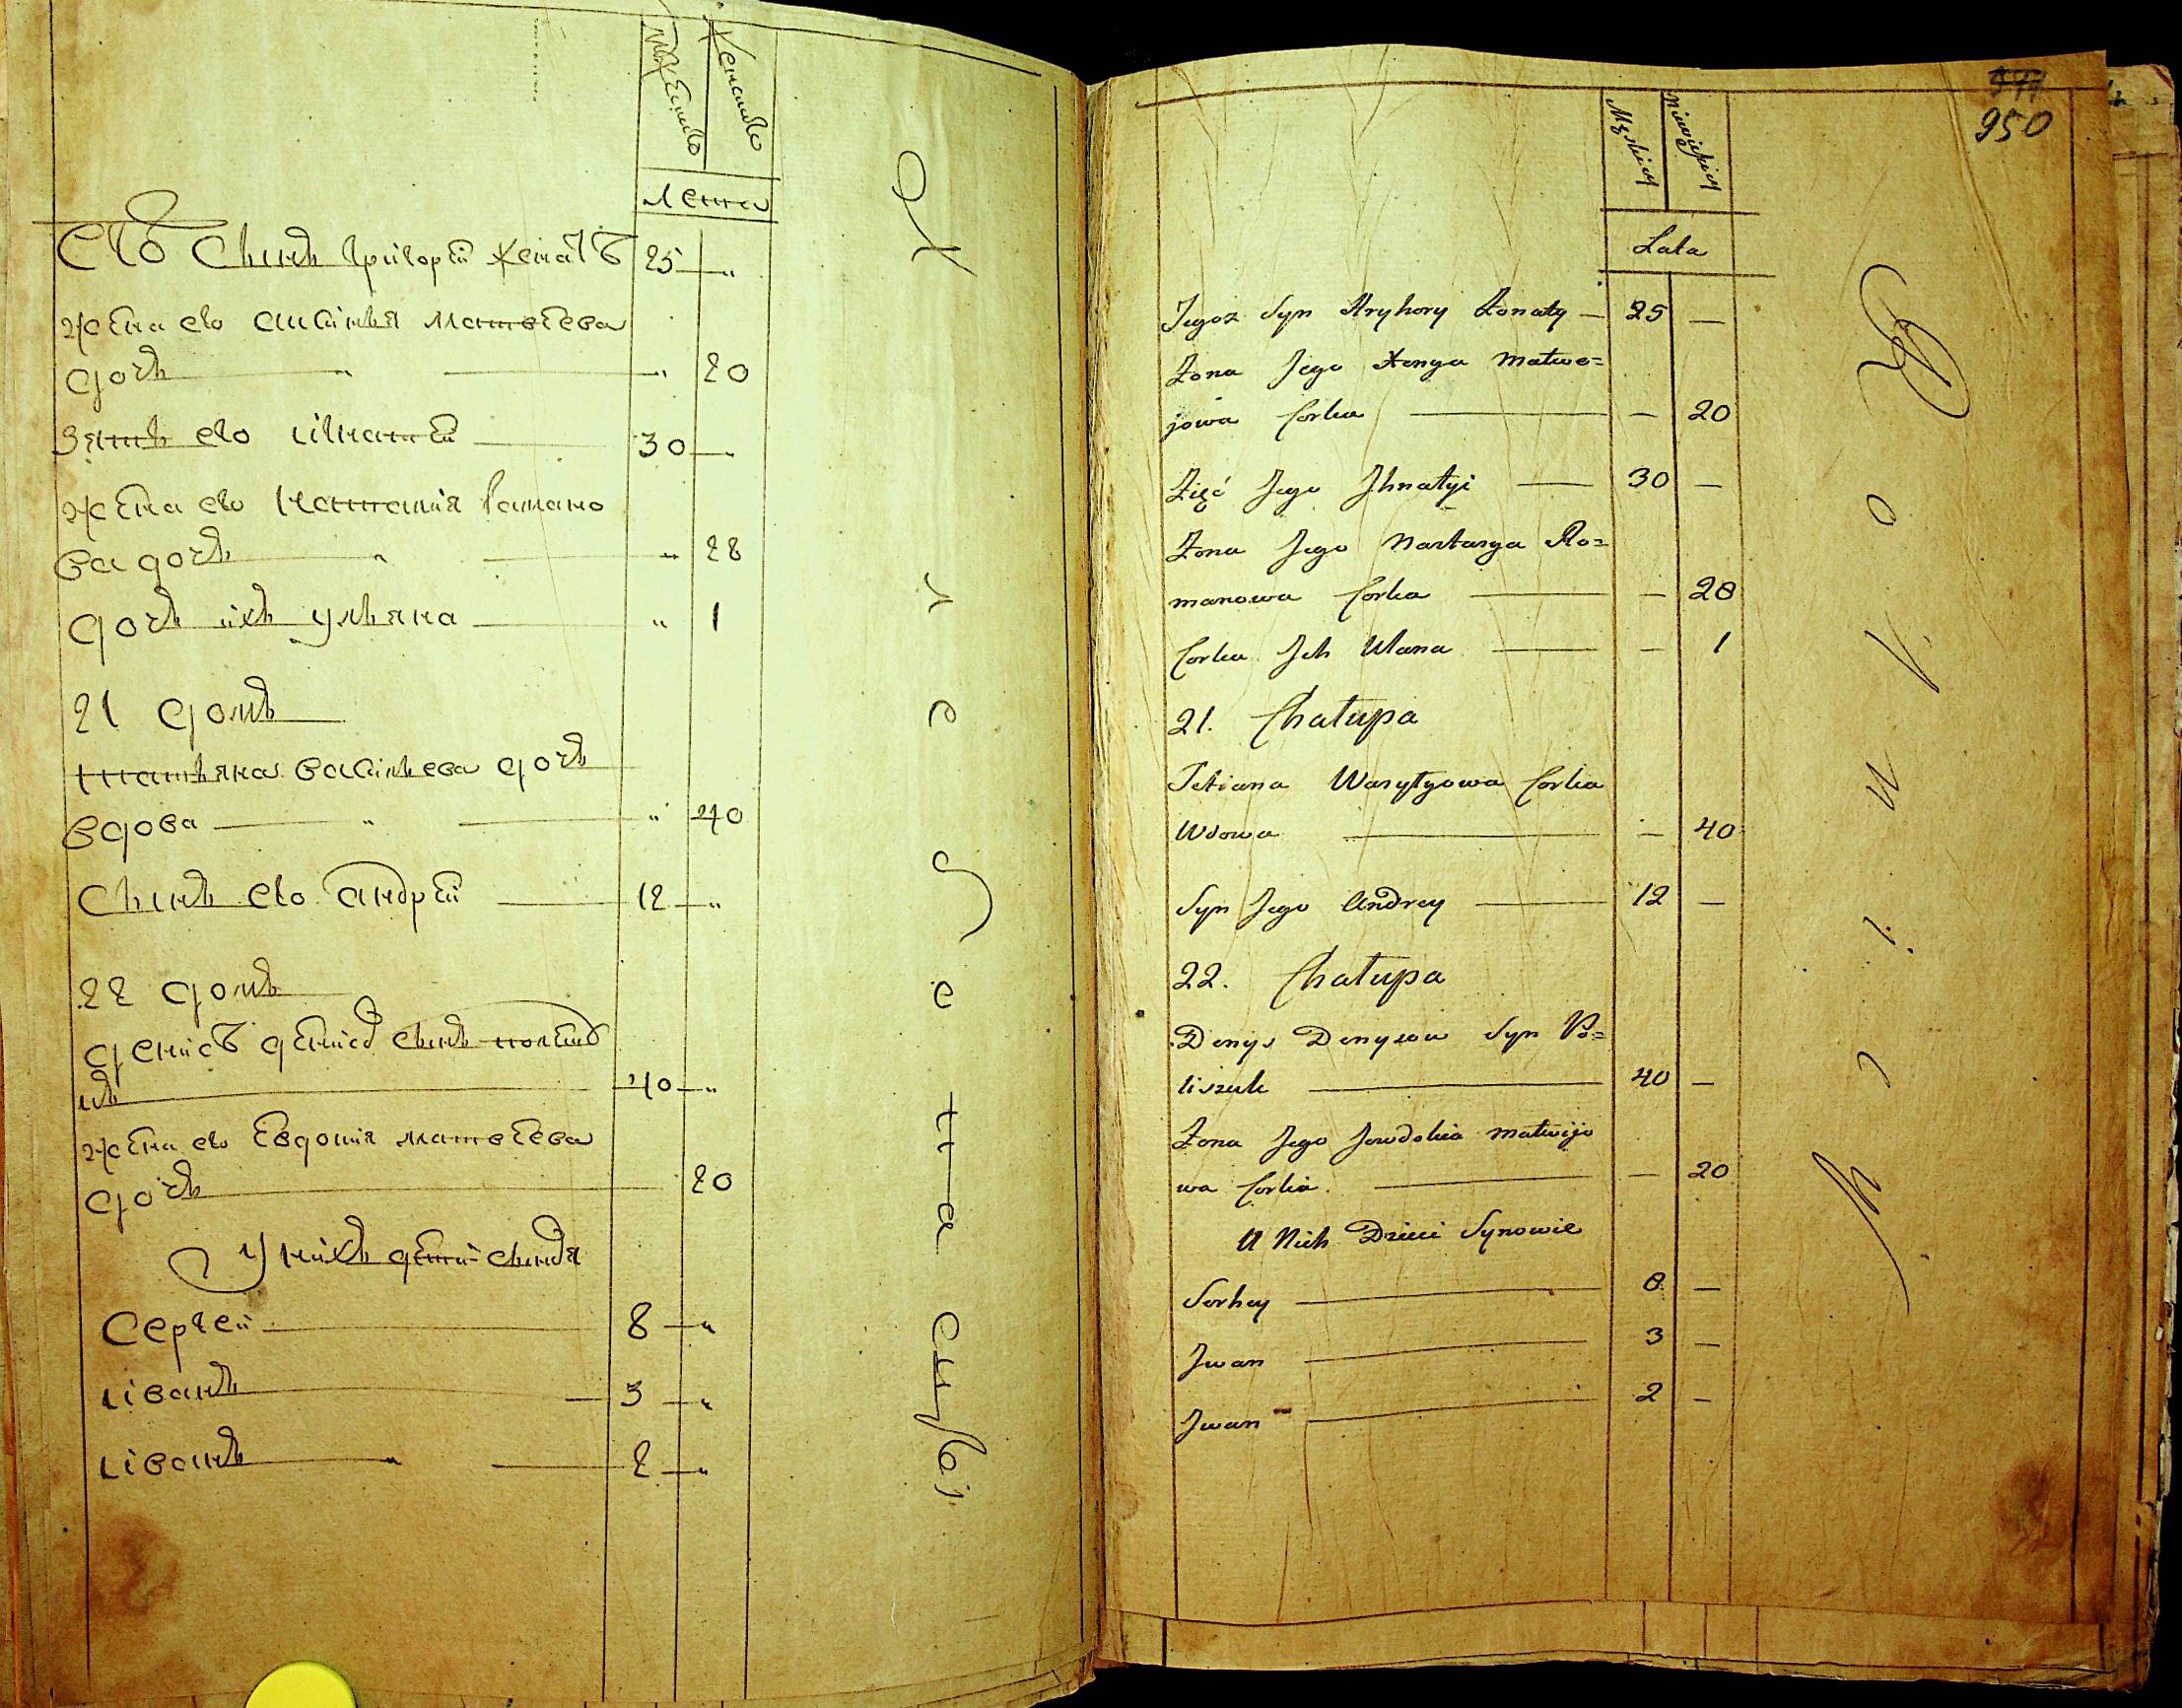 Мужеска Женска
Лета
Его сынъ Григорей женатъ 25 — „
жена его Ксинья Матвеева
дочь — „ — „ 20
Зять его Игнатей — 30 — „
жена его Настасия Романо
ва дочь — „ — „ 28
дочь ихъ Ульяна — „ 1
21 домъ
Татьяна Васильева дочь
вдова — „ — „ 40
сынъ его Андрей — 12 — „
22 домъ
Денисъ Денисовъ сынъ
40 — „
жена его Евдокия Матвеева
дочь — 20
У нихъ дети сыновья
Сергей — 8 — „
Иванъ — 3 — „
Иванъ — „ — 2 — „
950
Męskiey Niewieskiey
Lata
Jegoż Syn Hryhory Żonaty — 25 —
Żona Jego Xenya Matwe=
jowa Corka — — 20
Zięć Jego Jhnatyi — 30 —
Żona Jego Nastasya Ro=
manowa Corka — — 28
Corka Jch Ulana — — 1
21. Chałupa
Tetiana Wasylyowa Corka
Wdowa — — 40
Syn Jego Andrey — 12 —
22. Chałupa
Denys Denysow Syn Po=
liszuk — 40 —
Żona Jego Jewdokia Matwijo
wa Corka — — 20
U Nich Dzieci Synowie
Serhey — 8 —
Jwan — 3 —
Jwan — 2 —